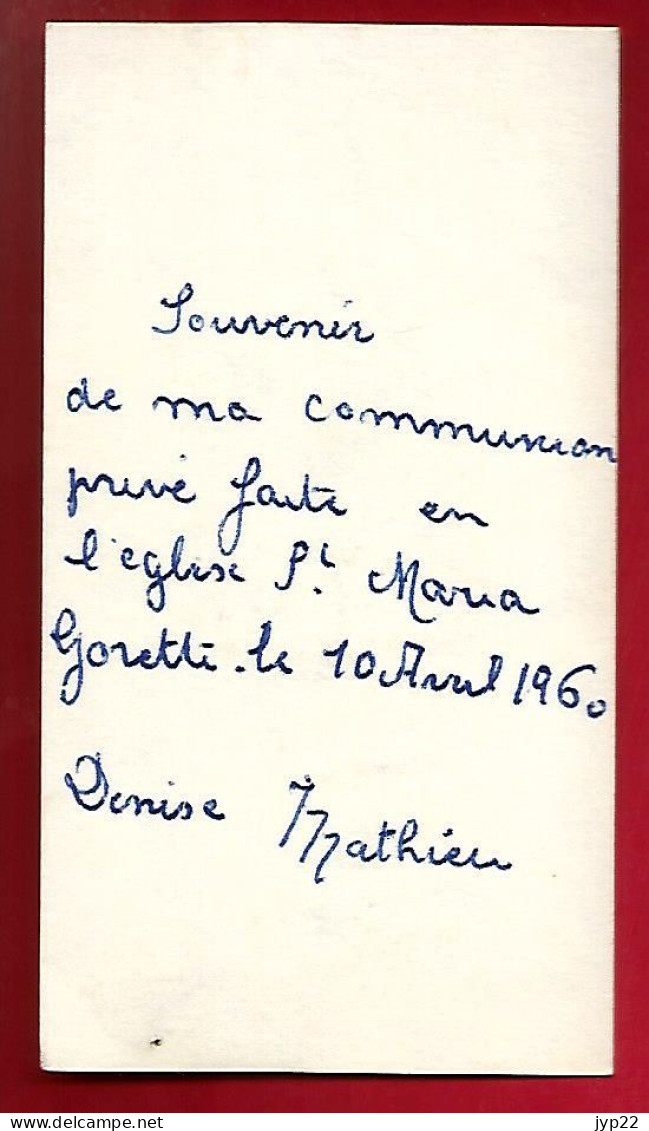 Souvenir
de ma communion
privé faite en
l'église St. Maria
Goretti. le 10 Avril 1960
Denise Mathieu
delcampe.net
jyp22